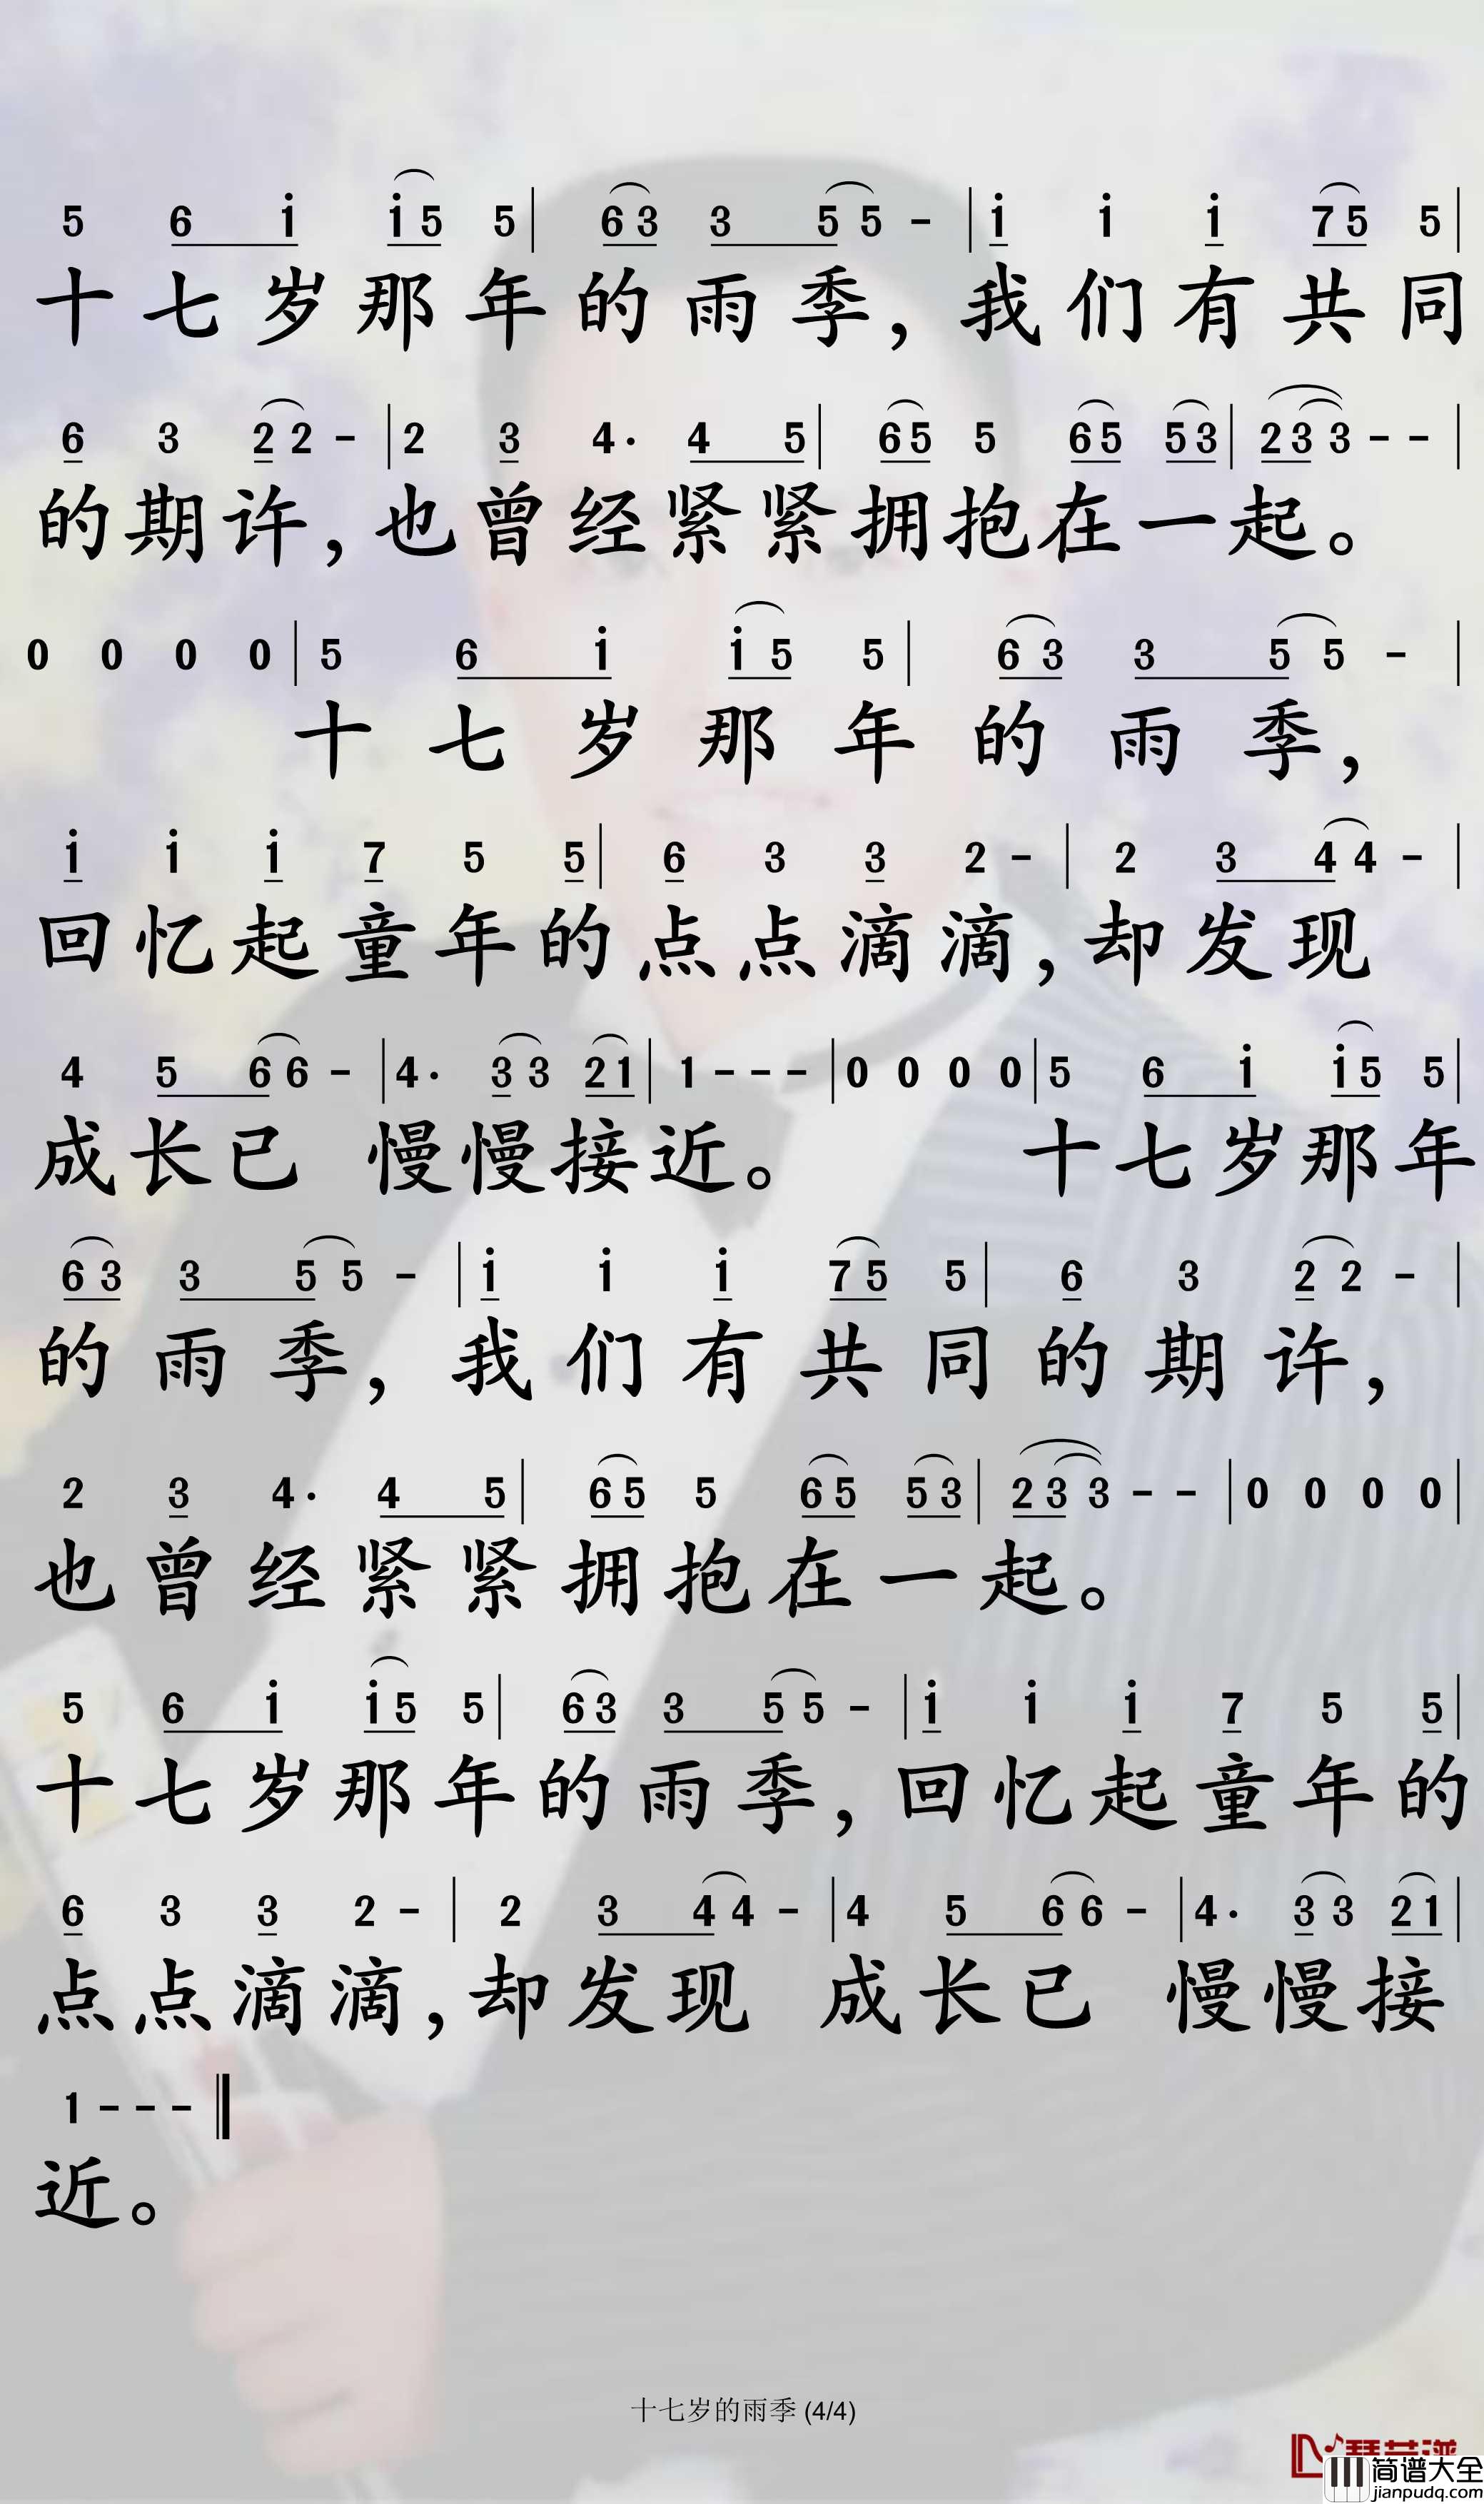 5 6 i i 5 5 | 6 3 3 5 5 - | i i i 7 5 5 |
十七岁那年的雨季，我们有共同
6 3 2 2 - | 2 3 4· 4 5 | 6 5 5 6 5 5 3 | 2 3 3 - - |
的期许，也曾经紧紧拥抱在一起。
0 0 0 0 | 5 6 i i 5 5 | 6 3 3 5 5 - |
十七岁那年的雨季，
i i i 7 5 5 | 6 3 3 2 - | 2 3 4 4 - |
回忆起童年的点点滴滴，却发现
4 5 6 6 - | 4· 3 3 2 1 | 1 - - - | 0 0 0 0 | 5 6 i i 5 5 |
成长已 慢慢接近。 十七岁那年
6 3 3 5 5 - | i i i 7 5 5 | 6 3 2 2 - |
的雨季，我们有共同的期许，
2 3 4· 4 5 | 6 5 5 6 5 5 3 | 2 3 3 - - | 0 0 0 0 |
也曾经紧紧拥抱在一起。
5 6 i i 5 5 | 6 3 3 5 5 - | i i i 7 5 5 |
十七岁那年的雨季，回忆起童年的
6 3 3 2 - | 2 3 4 4 - | 4 5 6 6 - | 4· 3 3 2 1 |
点点滴滴，却发现 成长已 慢慢接
1 - - - ‖
近。
十七岁的雨季 (4/4)
简谱大全
jianpudq.com